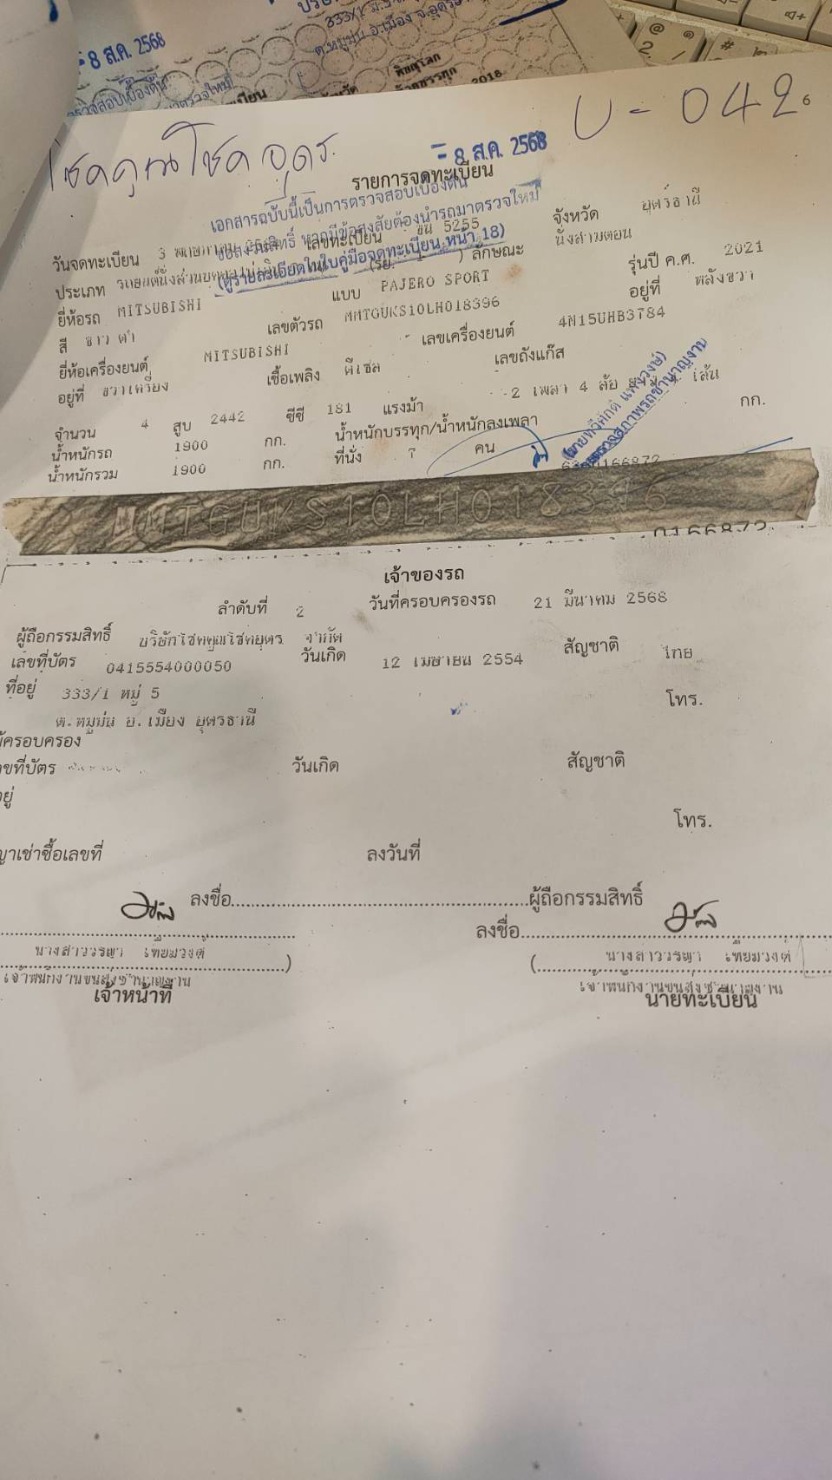 - 8 ส.ค. 2568
โชคคูณโชค อุดร. U - 042 6
- 8 ส.ค. 2568
รายการจดทะเบียน
เอกสารฉบับนี้เป็นการตรวจสอบเบื้องต้น
หากมีข้อสงสัยต้องนำรถมาตรวจใหม่
(ดูรายละเอียดในใบคู่มือจดทะเบียน หน้า 18)
วันจดทะเบียน 3 เลขทะเบียน ขน 5255 จังหวัด อุดรธานี
ประเภท ลักษณะ นั่งสามตอน
ยี่ห้อรถ MITSUBISHI แบบ PAJERO SPORT รุ่นปี ค.ศ. 2021
สี ขาว ดำ เลขตัวรถ MMTGUKS10LH018396 อยู่ที่ พลังขวา
ยี่ห้อเครื่องยนต์ MITSUBISHI เลขเครื่องยนต์ 4N15UHB3784
อยู่ที่ ขวาเครื่อง เชื้อเพลิง ดีเซล เลขถังแก๊ส
จำนวน 4 สูบ 2442 ซีซี 181 แรงม้า 2 เพลา 4 ล้อ เส้น
น้ำหนักรถ 1900 กก. น้ำหนักบรรทุก/น้ำหนักลงเพลา กก.
น้ำหนักรวม 1900 กก. ที่นั่ง 7 คน
MMTGUKS10LH018396
0166872
เจ้าของรถ
ลำดับที่ 2 วันที่ครอบครองรถ 21 มีนาคม 2568
ผู้ถือกรรมสิทธิ์ บริษัทโชคคูณโชคอุดร จำกัด
เลขที่บัตร 0415554000050 วันเกิด 12 เมษายน 2554 สัญชาติ ไทย
ที่อยู่ 333/1 หมู่ 5 โทร.
ต.หมูม่น อ.เมือง อุดรธานี
ผู้ครอบครอง
เลขที่บัตร วันเกิด สัญชาติ
ที่อยู่
โทร.
ลงวันที่
ลงชื่อ ผู้ถือกรรมสิทธิ์
ลงชื่อ
นางสาววรญา เทียมวงค์ ) ( นางสาววรญา เทียมวงค์
เจ้าพนักงานขนส่งชำนาญงาน เจ้าพนักงานขนส่งชำนาญงาน
เจ้าหน้าที่ นายทะเบียน